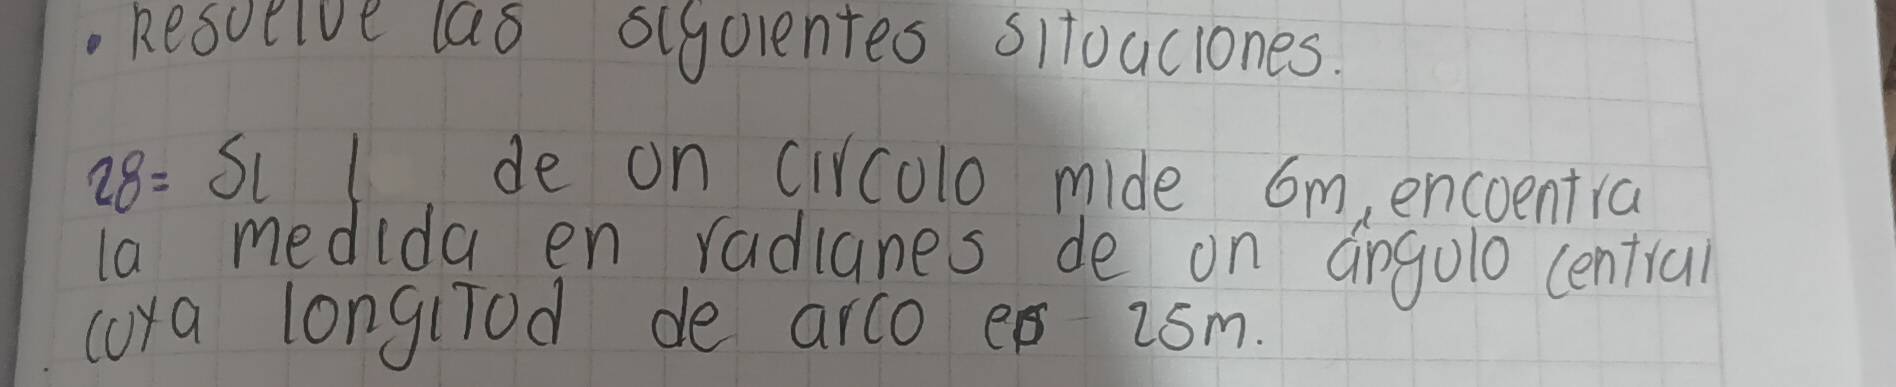 • Resuelve las siguientes situaciones.
28= Si l de un circulo mide 6m, encuentra
la medida en radianes de un ángulo central
cuya longitud de arco es 25m.